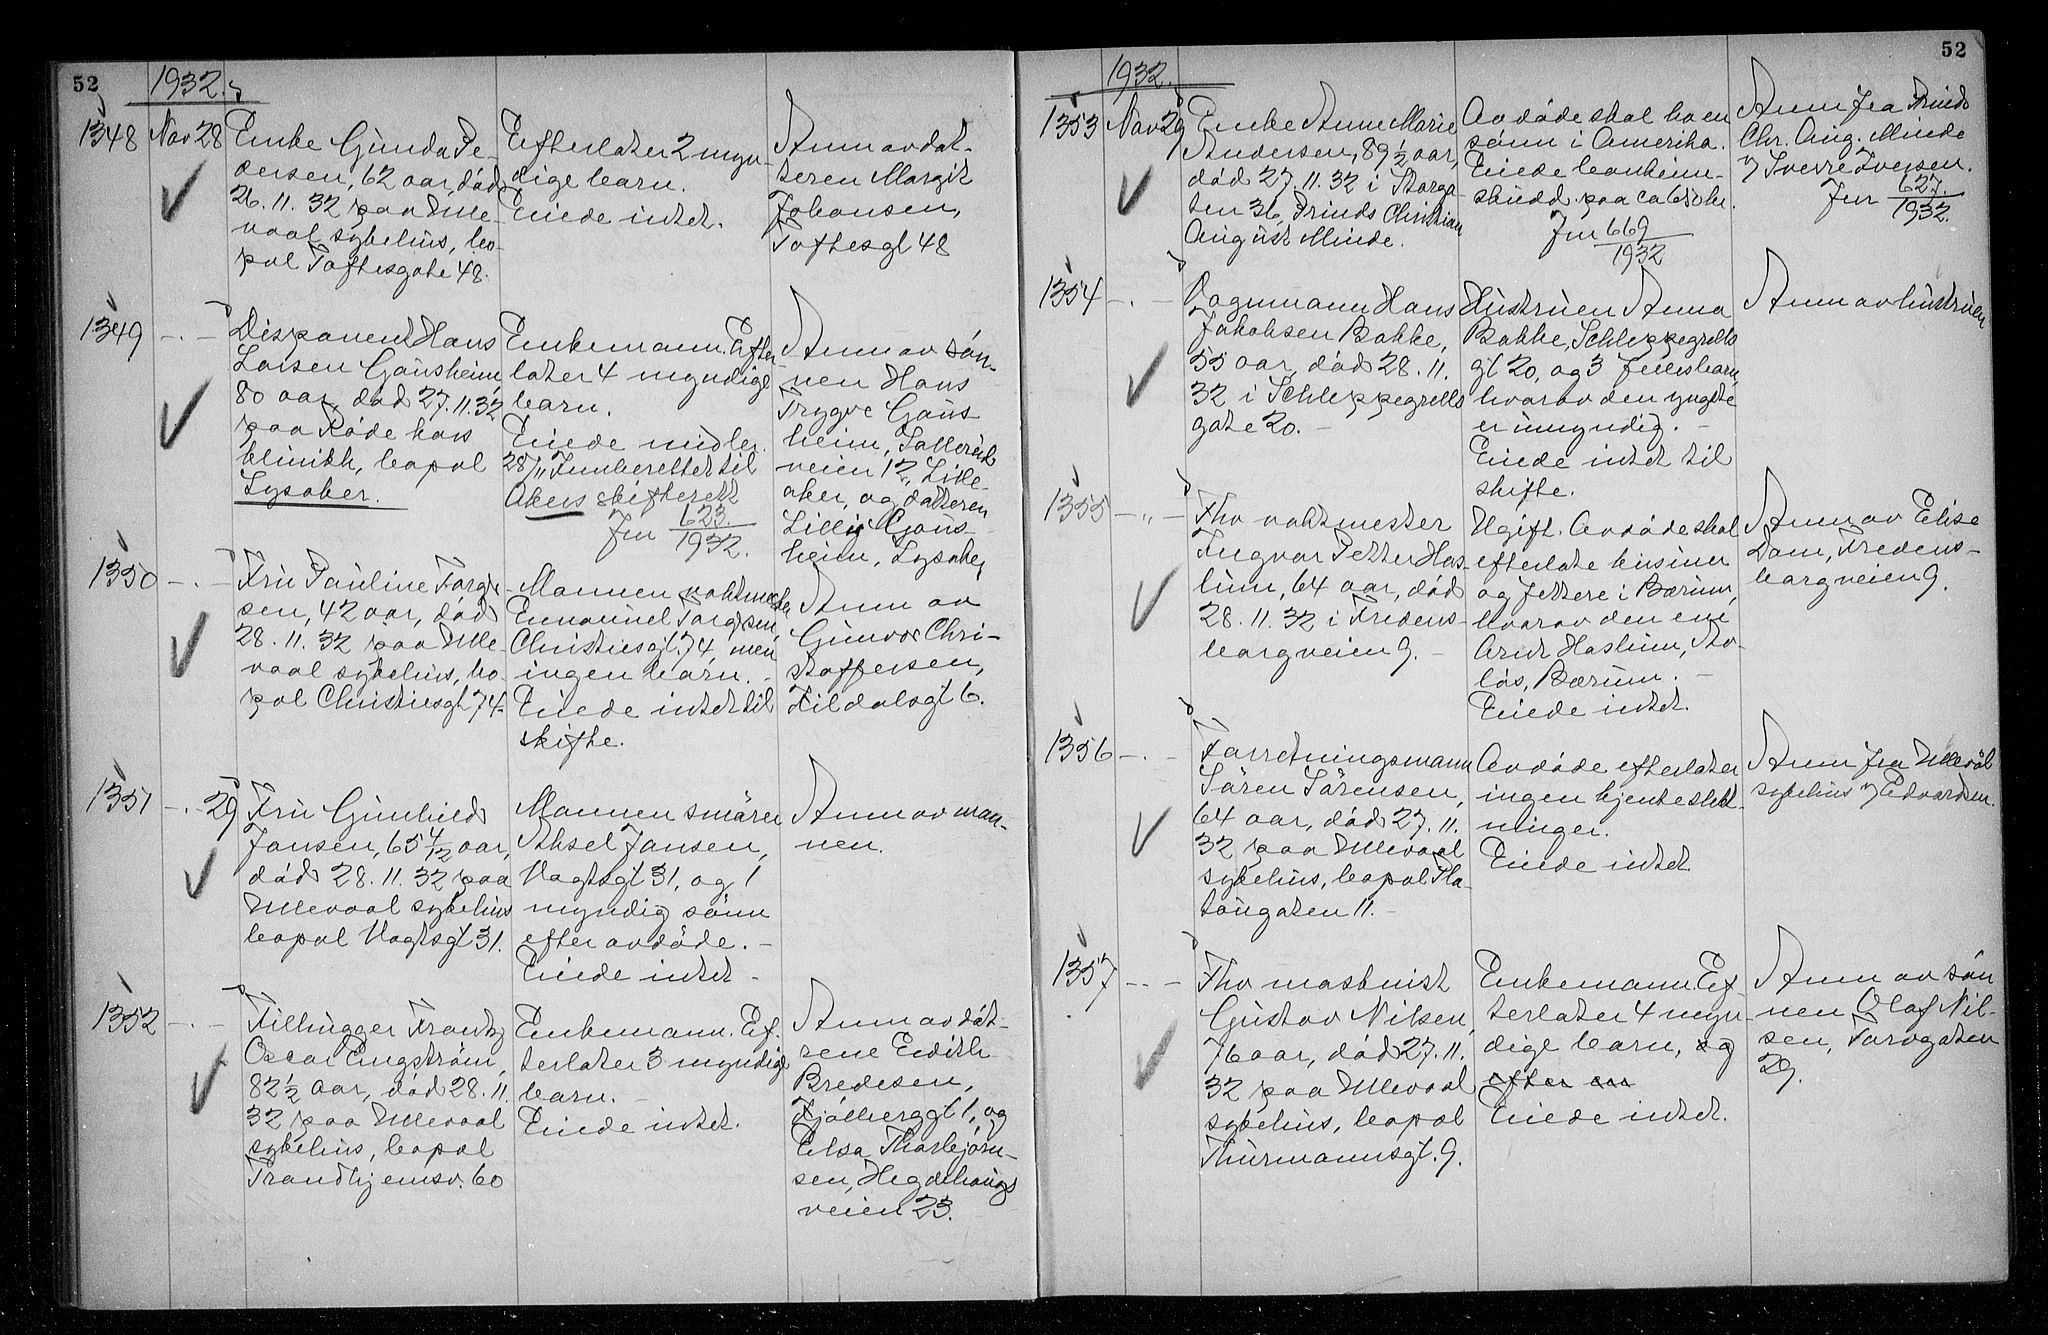 52
1932.
1348
Nov 28
Enke Gunda Pe-
dersen, 62 aar, död
26.11.32 paa Ulle-
vaal sykehus, bo-
pæl Toftesgate 48.
Efterlater 2 myn-
dige barn.
Eiede intet.
Anm av dat-
teren Margit
Johansen,
Toftesgt 48
1349
- . -
Disponent Hans
Larsen Gausheim
80 aar, död 27.11.32
paa Röde kors
klinikk, bopæl
Lysaker.
Enkemann. Efter-
later 4 myndige
barn.
Eiede midler.
28/11 Innberettet til
Akers skifterett
Jnr 623.
1932.
Anm av sön-
nen Hans
Trygve Gaus-
heim,
veien 12, Lille-
aker, og datteren
Lilly Gaus-
heim, Lysaker
1350
- . -
Fru Pauline Torgr-
sen, 42 aar, död
28.11.32 paa Ulle-
vaal sykehus, bo-
pæl Christiesgt 74.
Mannen vaktmester
Emanuel Torgrsen,
Christiesgt. 74 men
ingen barn. -
Eiede intet til
skifte.
Anm av
Gunvor Chri-
stoffersen,
Fildalsgt 6.
1351
- . 29
Fru Gunhild
Jansen, 65 4/12 aar,
död 28.11.32 paa
Ullevaal sykehus
bopæl Vogtsgt 31.
Mannen smörer
Aksel Jansen,
Vogtsgt 31, og 1
myndig sönn
efter avdöde. -
Eiede intet -
Anm av man-
nen.
1352
- . -
Filhugger Frantz
Oscar Engström,
82 1/2 aar, död 28.11.
32 paa Ullevaal
sykehus, bopæl
Trondhjemsv. 60
Enkemann. Ef-
terlater 3 myndige
barn. -
Eiede intet.
Anm av döt-
rene Edith
Bredesen,
Kjölberggt 1, og
Elsa Thorbjörn-
sen, Hegdehaugs
veien 23.
52
1932.
1353
Nov 29
Enke Anne Marie
Andersen, 89 1/2 aar,
död 27.11.32 i Storga-
ten 36, Prinds Christian
August Minde.
Avdöde skal ha en
sönn i Amerika.
Eiede bankinn-
skudd paa ca 650 kr.
Jnr 669
1932
Anm fra Prinds
Chr. Aug. Minde
v/ Sverre Iversen.
Jnr 627.
1932.
1354
- . -
Vognmann Hans
Jakobsen Bakke,
55 aar, död 28.11.
32 i Schleppegrells
gate 20. -
Hustruen Anna
Bakke, Schleppegrells
gt 20, og 3 fellesbarn,
hvorav den yngste
er umyndig. -
Eiede intet til
skifte.
Anm av hustruen
1355
- „ -
Fhv vaktmester
Ingvar Petter Has-
lum, 64 aar, död
28.11.32 i Fredens-
borgveien 9. -
Ugift. Avdöde skal
efterlate kusiner
og fettere i Bærum,
hvorav den ene
Arnt Haslum, Sto-
lös, Bærum. -
Eiede intet.
Anm av Elise
Dam, Fredens-
borgveien 9.
1356
- . -
Forretningsmann
Sören Sörensen,
64 aar, död 27.11.
32 paa Ullevaal
sykehus, bopæl Pla-
tougaten 11. -
Avdöde efterlater
ingen kjente slekt-
ninger.
Eiede intet
Anm fra Ullevål
sykehus v/ Edvardsen.
1357
- . -
Fhv maskinist
Gustav Nilsen,
76 aar, död 27.11.
32 paa Ullevaal
sykehus, bopæl
Thurmannsgt. 9.
Enkemann. Ef-
terlater 4 myn-
dige barn, og
efter en
Eiede intet.
Anm av sön
nen Olaf Nil-
sen, Torvgaten
29.